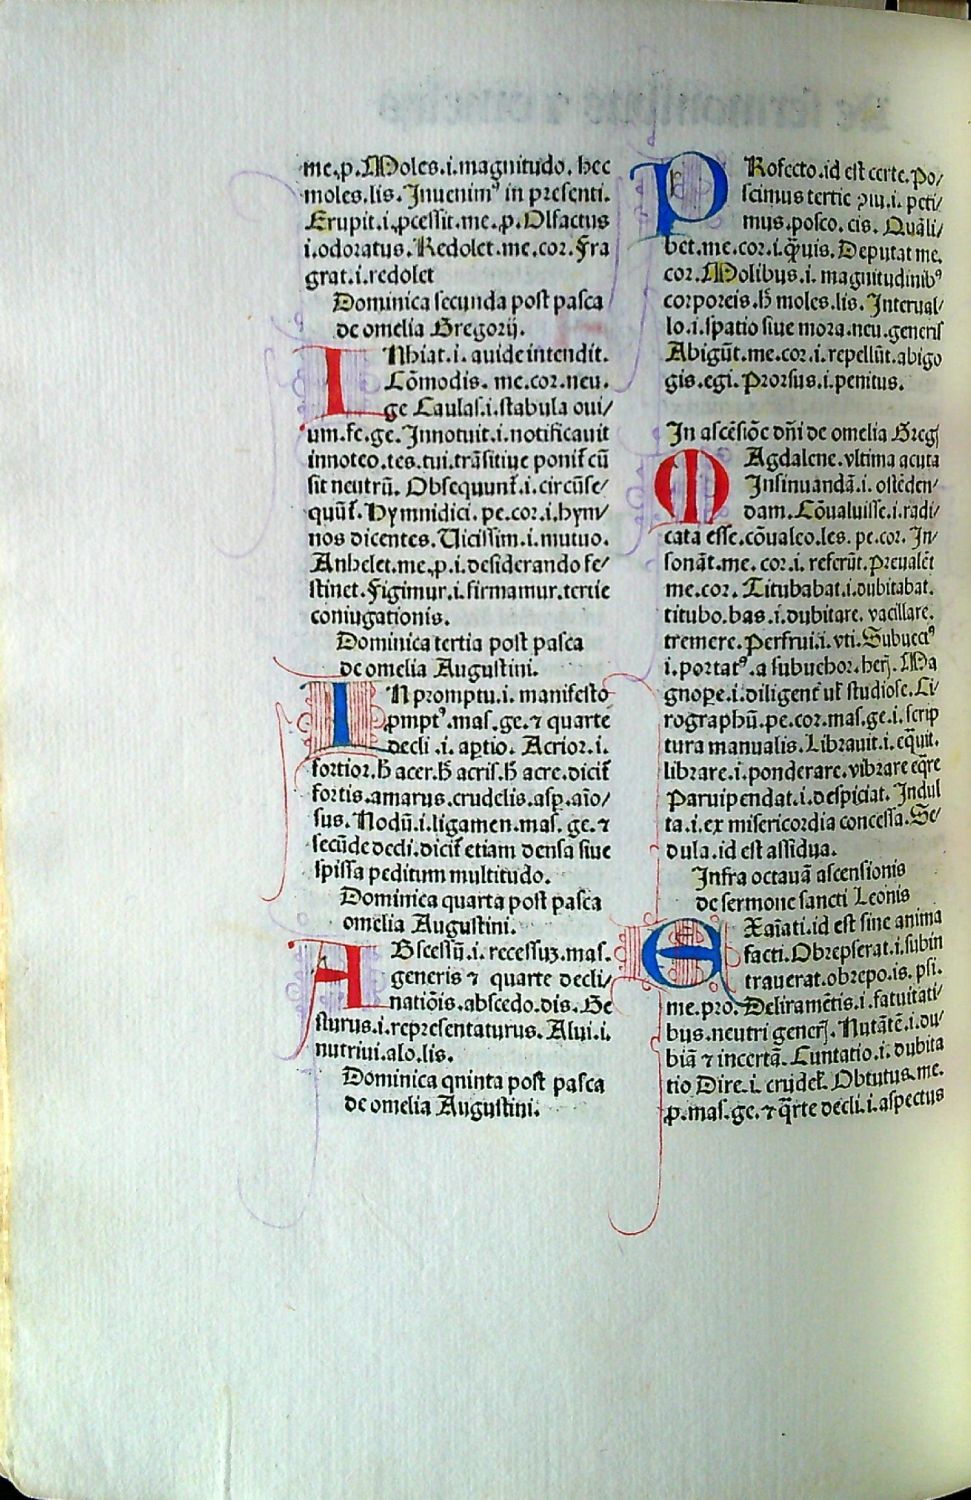 me.ꝓ. Moles.i.magnitudo. hec
moles.lis. Inuenimꝰ in presenti.
Erupit.i.ꝓcessit.me.ꝓ. Olfactus
i.odoratus. Redolet.me.cor. Fra
grat.i.redolet
Dominica secunda post pasca
de omelia Gregorij.
INhiat.i. auide intendit.
Cōmodis. me.cor.neu.
ge Caulas.i.stabula oui/
um.fe.ge. Innotuit.i.notificauit
innoteo.tes.tui.trāsitiue ponit̄ cū
sit neutrū. Obsequunt̄.i.circūse/
quūt̄. Hymnidici.pe.cor.i.hym/
nos dicentes. Uicissim.i.mutuo.
Anhelet.me.ꝓ.i.desiderando fe/
stinet. Figimur.i.firmamur.tertie
coniugationis.
Dominica tertia post pasca
de omelia Augustini.
IN promptu.i. manifesto
ꝓmptꝰ.mas.ge.⁊ quarte
decli .i. aꝑtio. Acrior.i.
fortior.h̄ acer.h̄ acris.h̄ acre.dicit̄
fortis.amarus.crudelis.asꝑ.aīo/
sus. Nodū.i.ligamen.mas. ge. ⁊
secūde decli.dicit̄ etiam densa siue
spissa peditum multitudo.
Dominica quarta post pasca
omelia Augustini.
ABscessū.i. recessuꝫ.mas.
generis ⁊ quarte decli/
natiōis.abscedo.dis. Ge
sturus.i.representaturus. Alui.i.
nutriui.alo.lis.
Dominica qninta post pasca
de omelia Augustini.
PRofecto.id est certe. Po/
scimus tertie ꝯiu.i. peti/
mus.posco. cis. Quāli/
bet.me.cor.i.q̄uis. Deputat me.
cor. Molibus.i. magnitudinibꝰ
corporeis.h̄ moles.lis. Interual/
lo.i.spatio siue mora.neu.generis
Abigūt.me.cor.i.repellūt.abigo
gis.egi. Prorsus.i.penitus.
In ascēsiōe dn̄i de omelia Greg
MAgdalene.vltima acuta
Insinuandā.i. ostēden/
dam. Cōualuisse.i.radi/
cata esse.cōualeo.les. pe.cor. In/
sonāt.me. cor.i. referūt. Preualēt
me.cor. Titubabat.i.dubitabat.
titubo.bas.i.dubitare. vacillare.
tremere. Perfrui.i. vti. Subuectꝰ
i.portatꝰ.a subuehor.herꝭ. Ma
gnoꝑe.i.diligent̄ uł studiose. Ci/
rographū.pe.cor.mas.ge.i.scrip
tura manualis. Librauit.i.eq̄uit.
librare.i.ponderare.vibrare eq̄re
Paruipendat.i.despiciat. Indul
ta.i.ex misericordia concessa. Se/
dula.id est assidua.
Infra octauā ascensionis
de sermone sancti Leonis
EXaīati.id est sine anima
facti. Obrepserat.i.subin
trauerat.obrepo.is. psi.
me.pro. Deliramētis.i.fatuitati/
bus.neutri generꝭ. Nutātē.i.du/
biā ⁊ incertā. Cuntatio.i. dubita
tio Dire.i. crudeł. Obtutus.me.
ꝓ.mas.ge. ⁊ q̄rte decli.i.aspectus